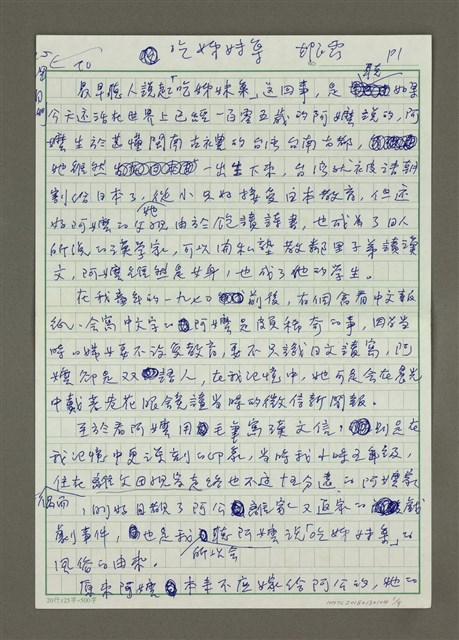 吃姊妹桌 韓良露 P1
最早聽人說起「吃姊妹桌」這回事,是聽如果
今天還活在世界上已經一百零五歲的阿嬤說的,阿
嬤生於甚懂閩南古禮的台灣台南古鄉,
她雖然一出生下來,台灣就被清朝
割給日本了,從小只好接受日本教育,但還
好阿嬤的父親由於飽讀詩書,也成為了日人
所說的漢學家,可以開私塾教鄰里子弟讀漢
文,阿嬤雖然是女身,也成了他的學生。
在我童年的一九七〇前後,有個會看中文報
紙、會寫中文字的阿嬤是頗稀奇的事,因為當
時的嬤要不沒受教育,要不只識日文讀寫,阿
嬤卻是双語人,在我記憶中,她可是會在晨光
中戴著老花眼鏡讀當時的徵信新聞報。
至於看阿嬤用毛筆寫漢文信,則是在
我記憶中更深刻的印象,當時我小時五年級,
住在離父母親家走路也不過十分遠的阿嬤家
,剛好目親了阿公離家又返家的戲
劇事件,也是我聽阿嬤說「吃姊妹桌」的
風俗的由來。
所以會
原來阿嬤本來不應嫁給阿公的,她的
20行×25字=500字